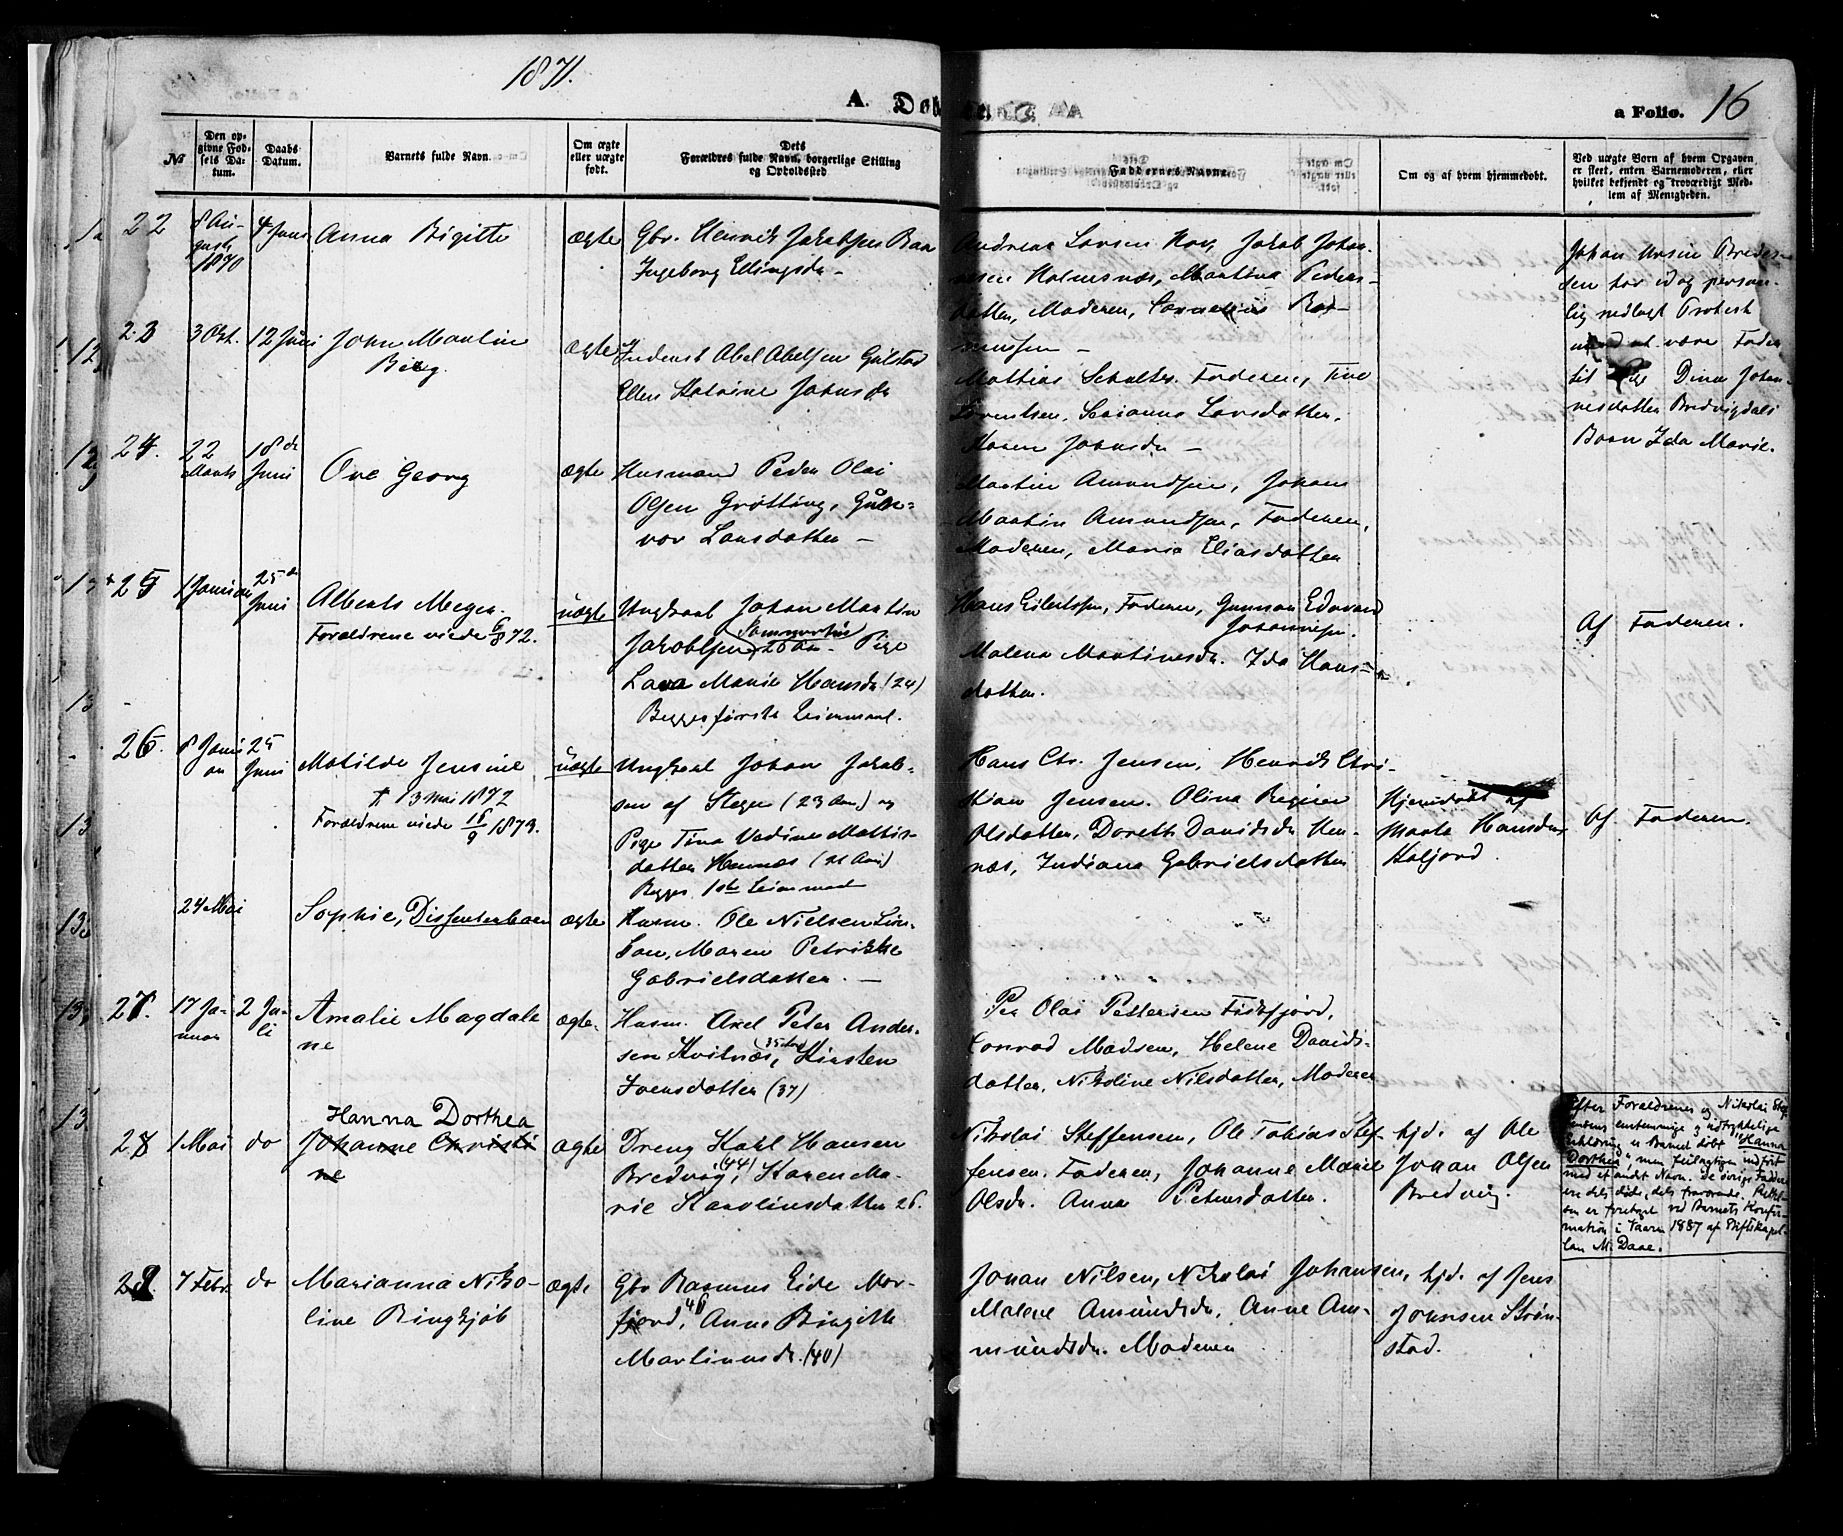 1871.
A. Døb
a Folio. 16
№
Den op-
givne Fød-
sels Da-
tum.
Daabs
Datum.
Barnets fulde Navn.
Om ægte
eller uægte
født.
Dets
Forældres fulde Navn, borgerlige Stilling
og Opholdssted
Faddernes Navne
Om og af hvem hjemmedøbt.
Ved uægte Børn af hvem Opgaven
er skeet, enten Barnemoderen, eller
hvilket bekjendt og troværdigt Med-
lem af Menigheden.
22
8 Au-
gust
1870
4 Juni
Anna Birgitte
ægte
Gbr. Henrik Jakobsen
Ingeborg Ellingsdr –
Andreas Larsen Jakob Johan-
nesen Holmesnæs, Martina Peders-
datter, Moderen, Cornelius Ras-
mussen –
Johan Ursin Breder-
sen har idag person-
lig nedlagt Protest
mod at være Fader
til Dina Johan-
nesdatter Bredvigdals
Barn Ida Marie.
23
3 Okt.
12 Juni
John Martin
Berg.
ægte
Inderst Abel Abelsen Gulstad
Ellen Katrine Johnsdr
Mathias Schultes. Faderen,
Lorentsen, Larsdatter,
Karen Johnsdr –
24.
22
Marts
18de
Juni
Ove Georg
ægte
Husmand Peder Olai
Olsen Grøtting, Gun-
vor Larsdatter –
Martin Amundsen, Johan
Martin Amundsen, Faderen,
Moderen, Maria Eliasdatter
25
1 Januar
25de
Juni
Alberts Meyer.
Forældrene viede 6/8 72.
uægte
Ungkarl Johan Martin
Jakobsen 26 Aar. Pige
Marie Hansdr (24)
Begges første Leiermaal.
Hans Eilertsen, Faderen, Gunnar Edvard
Johannesen.
Malena Martinesdr. Ida Hans-
datter.
Af Faderen.
26.
8 Janu
ar
25
Juni
Matilde Jensine
† 13 Mai 1872
Forældrene viede 15/9 1873.
uægte
Ungkarl Johan Jakob-
sen af Steger (23 Aar) og
Pige Tina Mattis-
datter Hennæs (21 Aar)
Begges 1ste Leiermaal
Hans Chr. Jensen, Henrik Chri-
stian Jensen. Olina Regine
Olsdatter, Doreth Davidsdr Hen-
næs, Indiana Gabrielsdatter
Hjemdøbt af
Marta Hansdr
Kaljord.
Af Faderen.
24 Mai
Sophie, Dissenterbarn
ægte
Husm. Ole Nielsen
Maren Petrikke
Gabrielsdatter. –
27.
17 Ja-
nuar
2 Ju-
li
Amalie Magdale
ne
ægte.
Husm. Axel Peter Ander-
sen Kvitnæs, (35 Aar) Kirsten
Joensdatter (37)
Per Olai Pettersen Fiskfjord,
Conrad Madsen, Helene Davids-
datter, Nikoline Nilsdatter, Moderen
28
1 Mai
do
Hanna Dorthea
Johanne Christi
ne
ægte
Dreng Karl Hansen
Bredvig, (44) Karen Ma-
rie Karolinsdatter 26.
Nikolai Steffensen, Ole Tobias Stef-
fensen. Faderen, Johanne Marie
Olsdr. Anna Petersdatter.
hjd. af Ole
Johan Olsen
Bredvig.
Efter Forældrenes og Nikolai Stef-
fensens enstemmige og udtrykkelige
Erklæring er Barnet døbt "Hanna
Dorthea", men feilagtigen indført
med et andet Navn. De øvrige Faddere
ere dels døde, dels fraværende. Rettel-
sen er foretaget ved Barnets Konfir-
mation i Vaaren 1887 af Stiftskapel-
lan M. Daae.
29.
7 Febr.
do
Marianna Niko-
line Ringkjøb
ægte
Gbr Rasmus Eide Mor-
fjord, 46 Anne Birgitte
Martinusdr. (40)
Johan Nilsen, Nikolai Johansen,
Malene Amundsdr, Anne Am-
mundsdr. Moderen
hjd. af Jens
Johnsen Strøm-
stad.